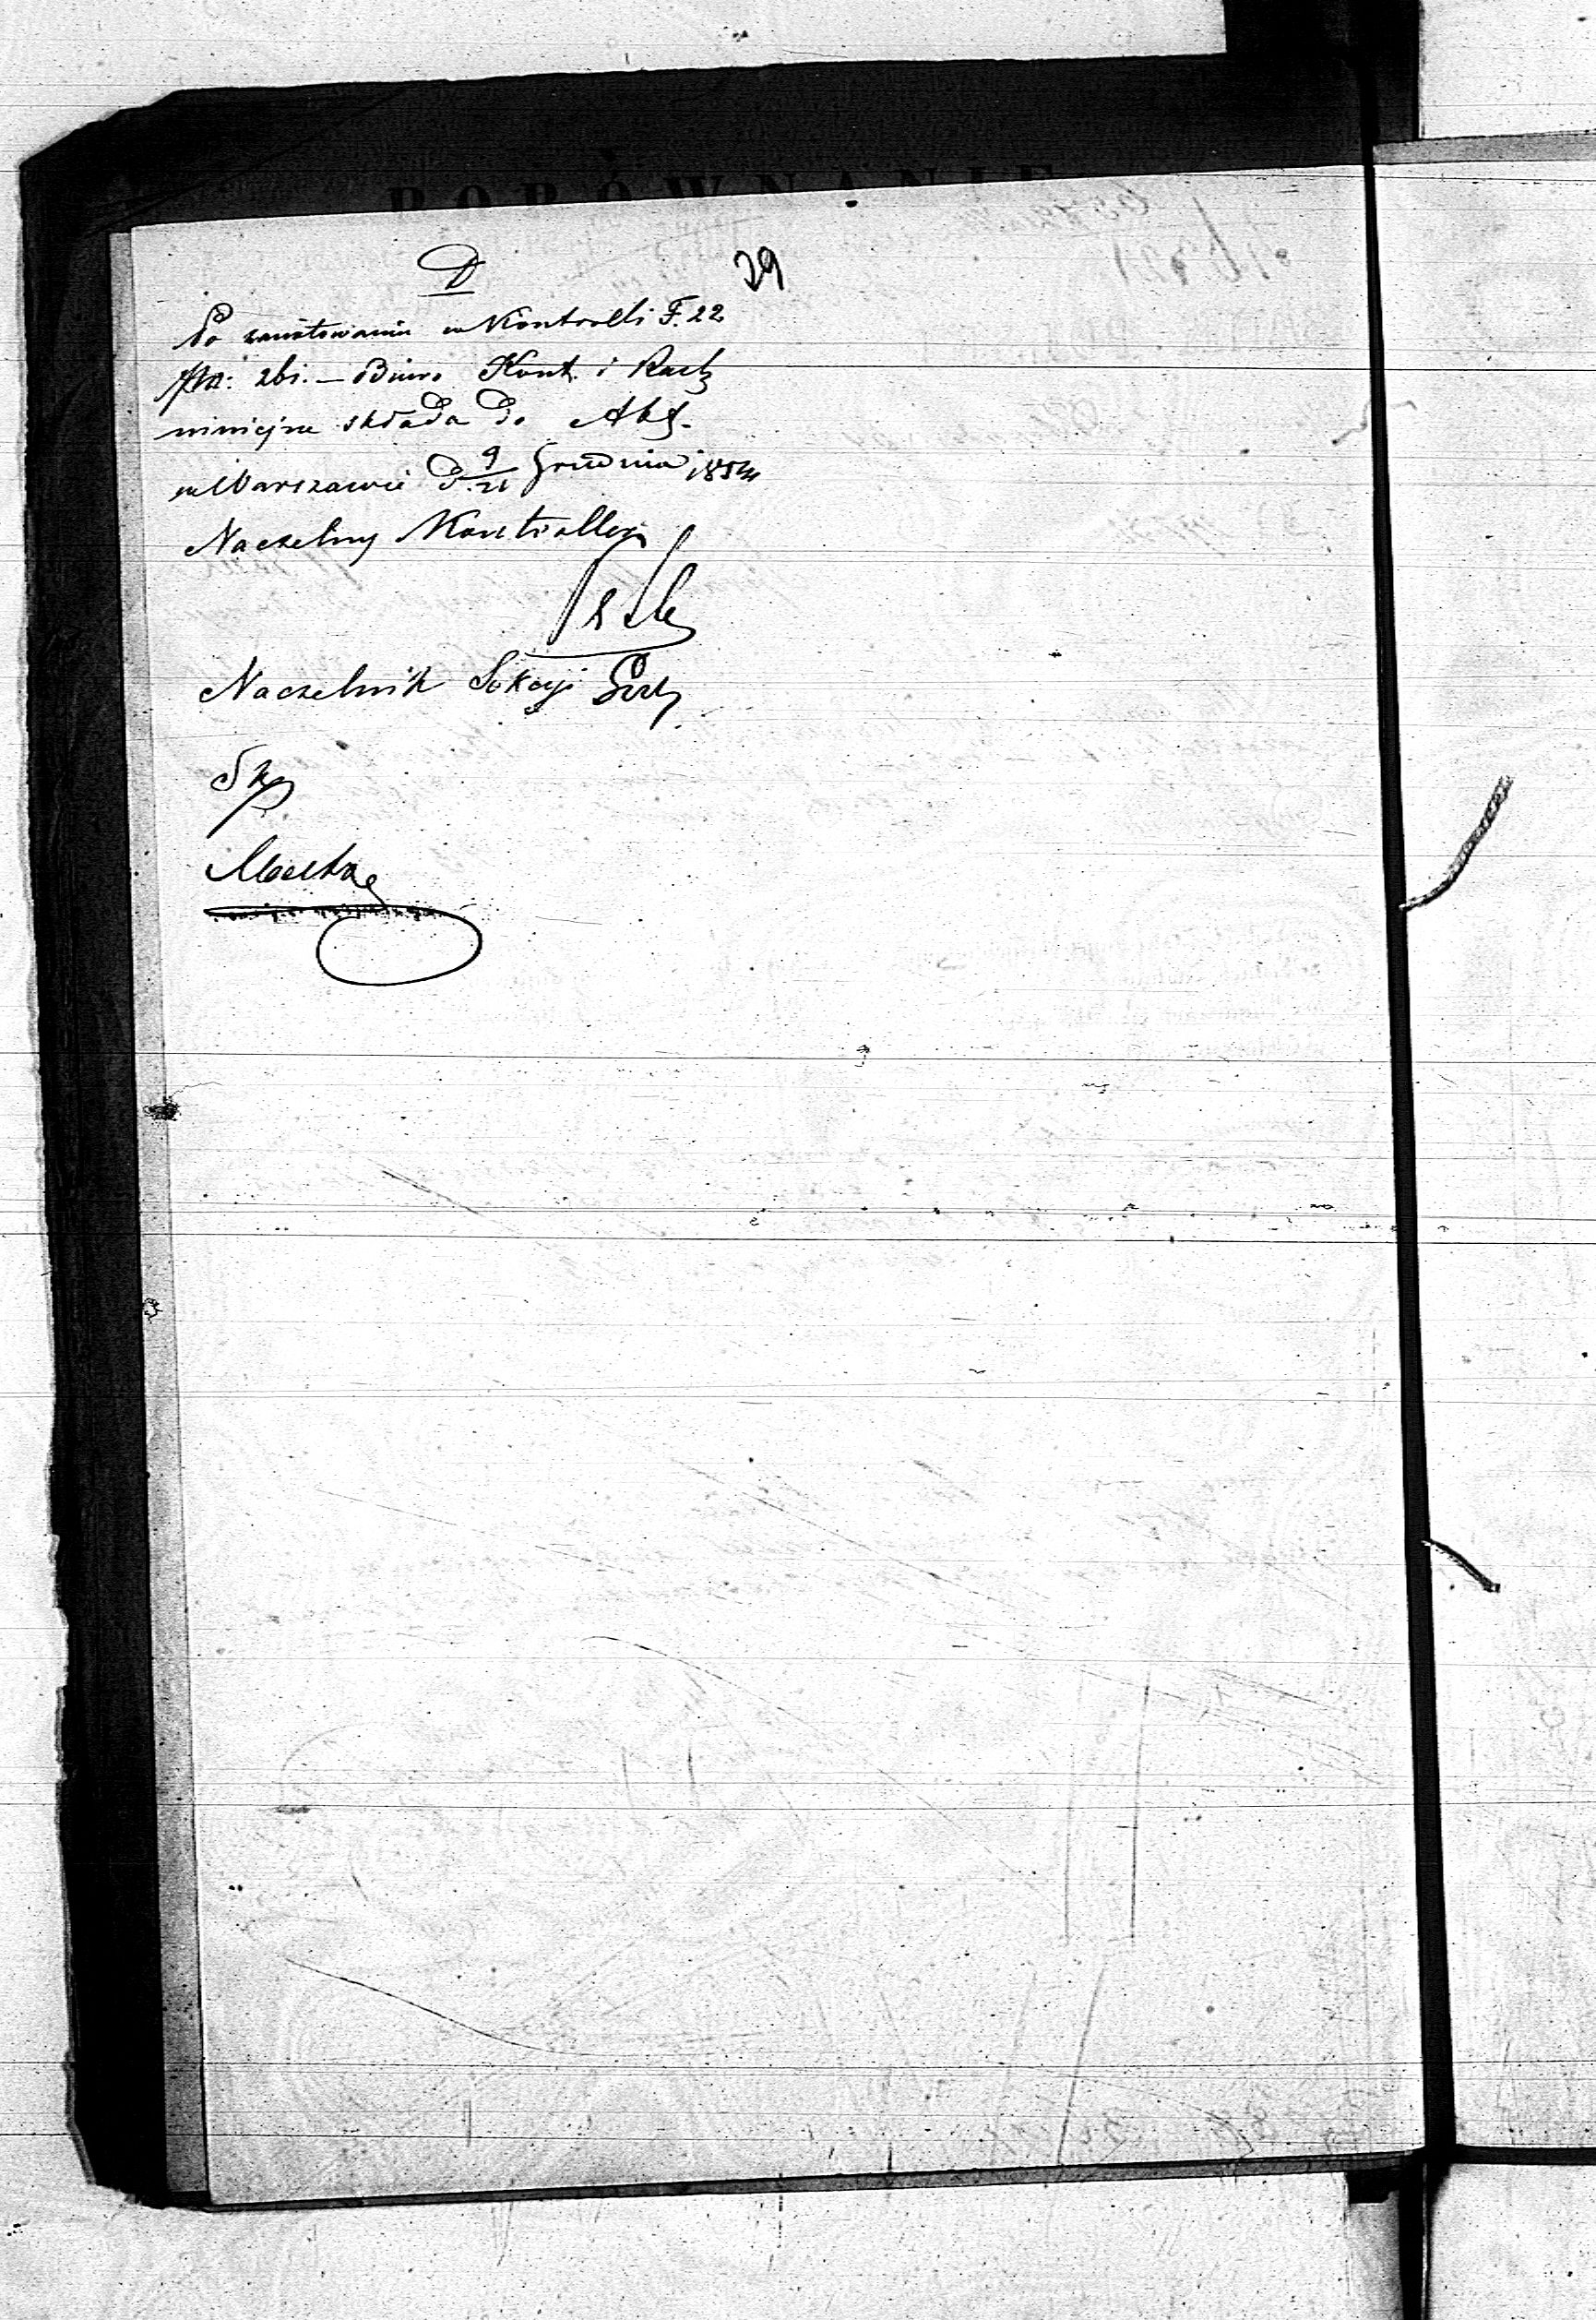 PORÓWNANIE
D 29
Po zanotowaniu w Kontrolli F. 22
261. — Biuro Kont. i Rach
niniejsze składa do Akt.
w Warszawie d. 9/21 Grudnia 1854
Naczelny Kontroller
Naczelnik Sekcyi